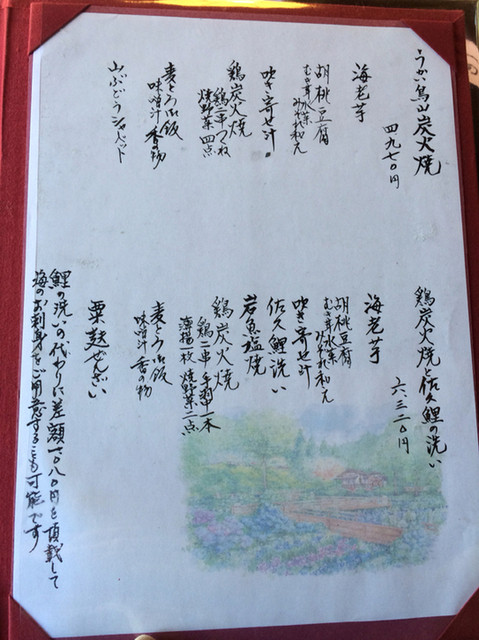 うかい鳥山炭火焼
四九七〇円
海老芋
胡桃豆腐
むかご水菜みぞれ和え
吹き寄せ汁
鶏炭火焼
鶏二串 つくね
焼野菜四点
麦とろ御飯
味噌汁 香の物
山ぶどうシャーベット
鶏炭火焼と佐久鯉の洗い
六、三二〇円
海老芋
胡桃豆腐
むかご水菜みぞれ和え
吹き寄せ汁
佐久鯉洗い
岩魚塩焼
鶏炭火焼
鶏二串 手羽一本
薄揚一枚 焼野菜二点
麦とろ御飯
味噌汁 香の物
粟麩ぜんざい
鯉の洗いの代わりに差額一〇八〇円を頂戴して
海のお刺身をご用意することも可能です